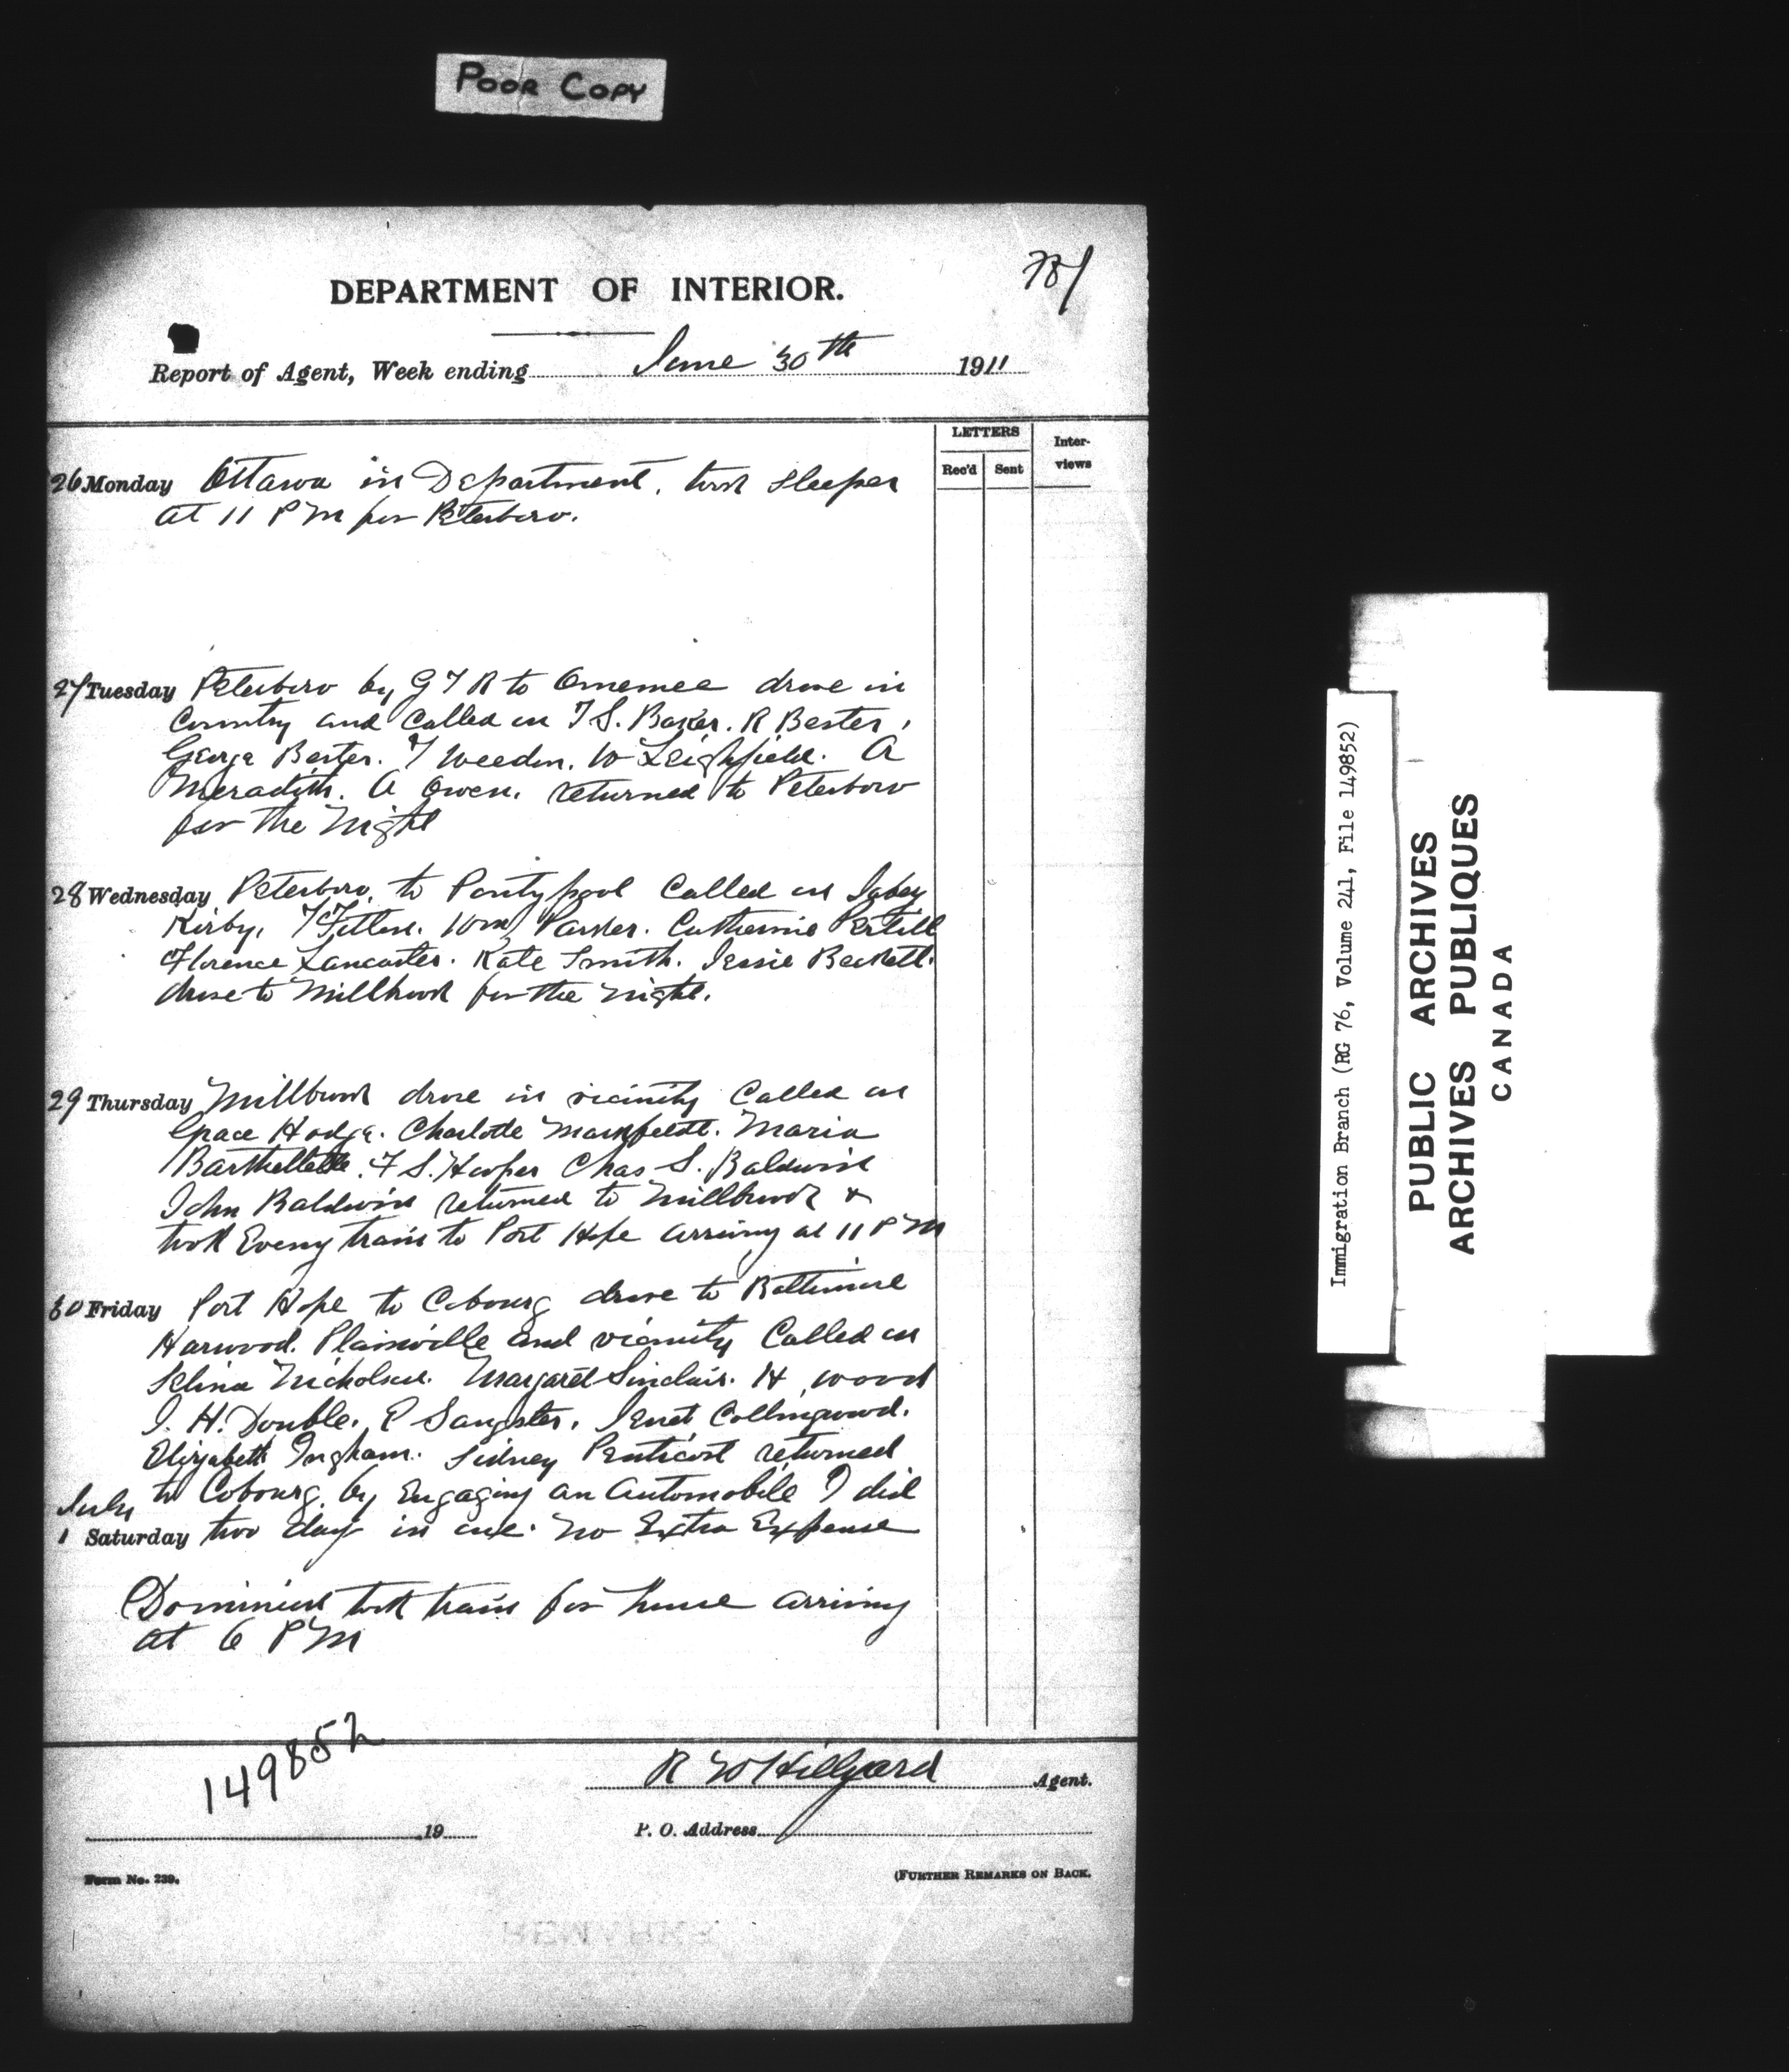 POOR COPY
781
DEPARTMENT OF INTERIOR.
Report of Agent, Week ending June 30th 1911
LETTERS
Inter-
views
Rec'd Sent
26 Monday Ottawa in Department. took sleeper
at 11 P M for Peterboro.
27 Tuesday Peterboro by G T R to Omemee drove in
Country and Called on T S. Baker. R Bester,
George Bester. T Weedon. W Leighfield. A
Meradith. A Owen. returned to Peterboro
for the Night
28 Wednesday Peterboro. to Pontypool Called on
Kirby. Wm Parker. Catherine
Florence Lancaster. Kate Smith. Jessie Beckett.
drove to Millbrook for the night.
29 Thursday Millbrook drove in vicinity Called on
Grace Hodge. Charlotte Maria
F S. Hooper Chas S. Baldwin
John Baldwin returned to Millbrook &
took Eveng train to Port Hope arriving at 11 P M
30 Friday Port Hope to Cobourg drove to Baltimore
Harwood. Plainville and vicinity Called on
Selina Nicholson. Margaret Sinclair. H wood
J. H. Double. E Sangster. Collingwood.
Elizabeth Ingham. Sidney Penticost returned
to Cobourg. by Engaging an Automobile I did
July
1 Saturday two days in one. no Extra Expense
Dominion took train for home arriving
at 6 P M
149852
R W Hillyard Agent.
19
P. O. Address
Form No. 239.
(FURTHER REMARKS ON BACK.
Immigration Branch (RG 76, Volume 241, File 149852)
PUBLIC ARCHIVES
ARCHIVES PUBLIQUES
CANADA